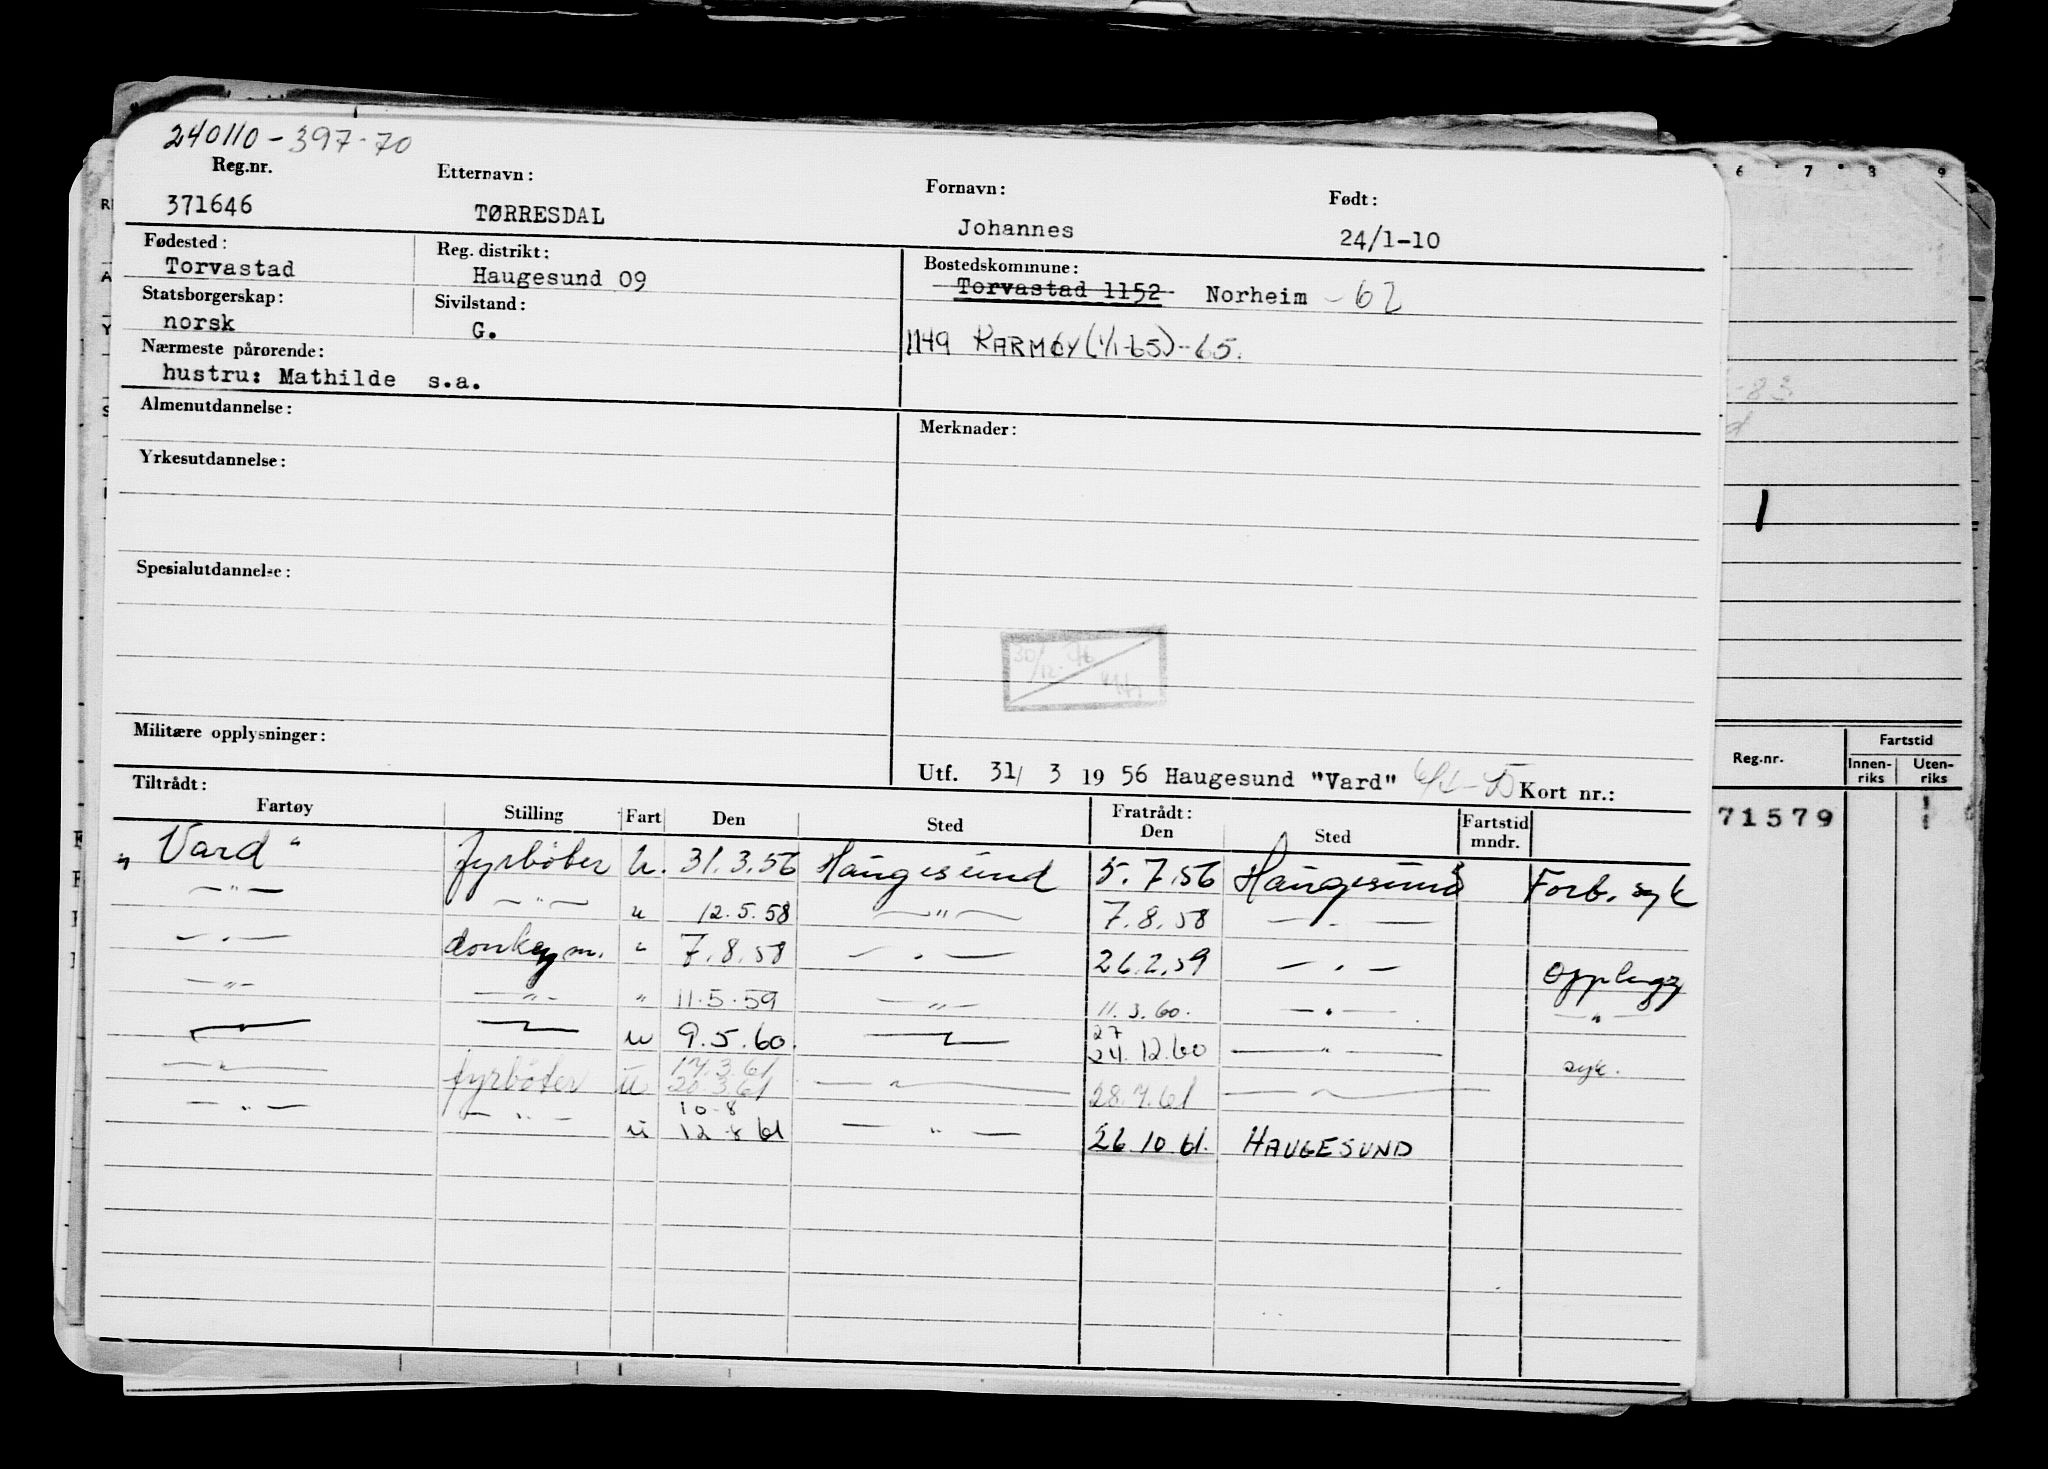 240110-397-70
Reg.nr. Etternavn: Fornavn: Født:
371646 TØRRESDAL Johannes 24/1-10
Fødested: Reg. distrikt: Bostedskommune:
Torvastad Haugesund 09 Torvastad 1152 Norheim -62
Statsborgerskap: Sivilstand:
norsk G. 1149 KARMØY (1/1-65)-65.
Nærmeste pårørende:
hustru: Mathilde s.a.
Almenutdannelse: Merknader:
Yrkesutdannelse:
Spesialutdannelse:
30/12
Militære opplysninger:
Utf. 31/ 3 19 56 Haugesund "Vard" Kort nr.:
Tiltrådt: Fratrådt:
Fartøy Stilling Fart Den Sted Den Sted Fartstid mndr.
"Vard" fyrbøter U. 31.3.56 Haugesund 5.7.56 Haugesund Forb. syk
—"— —"— " 12.5.58 —"— 7.8.58 —"—
—"— donkeym. " 7.8.58 —"— 26.2.59 —"— Opplegg
—"— —"— " 11.5.59 —"— 11.3.60. —"— —"—
27
—"— —"— u 9.5.60. —"— 24.12.60 —"— syk.
17.3.61
—"— fyrbøter u 20.3.61 —"— 28.7.61 —"—
10-8
—"— —"— u 12-8 61 —"— 26.10.61. HAUGESUND
6 7 8 9
-83
1
Reg.nr. Fartstid
Innen-riks Uten-riks
71579